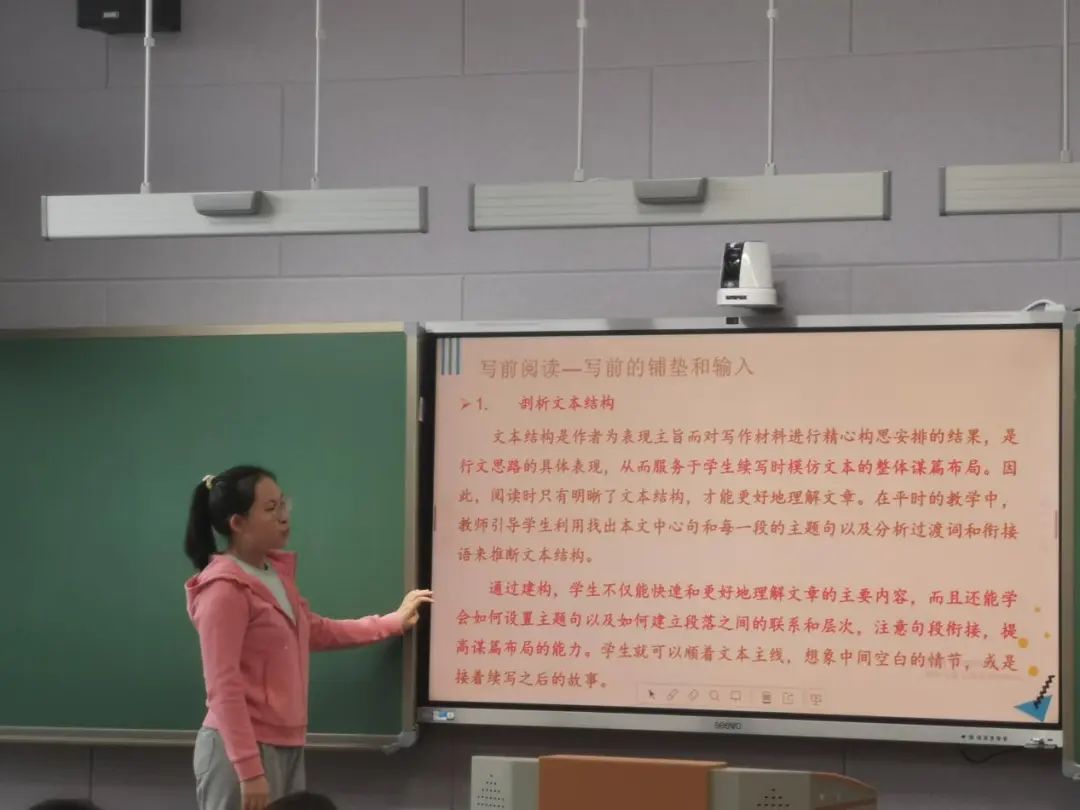 写前阅读—写前的铺垫和输入
➢ 1. 剖析文本结构
文本结构是作者为表现主旨而对写作材料进行精心构思安排的结果，是
行文思路的具体表现，从而服务于学生续写时模仿文本的整体谋篇布局。因
此，阅读时只有明晰了文本结构，才能更好地理解文章。在平时的教学中，
教师引导学生利用找出本文中心句和每一段的主题句以及分析过渡词和衔接
语来推断文本结构。
通过建构，学生不仅能快速和更好地理解文章的主要内容，而且还能学
会如何设置主题句以及如何建立段落之间的联系和层次，注意句段衔接，提
高谋篇布局的能力。学生就可以顺着文本主线，想象中间空白的情节，或是
接着续写之后的故事。
seewo